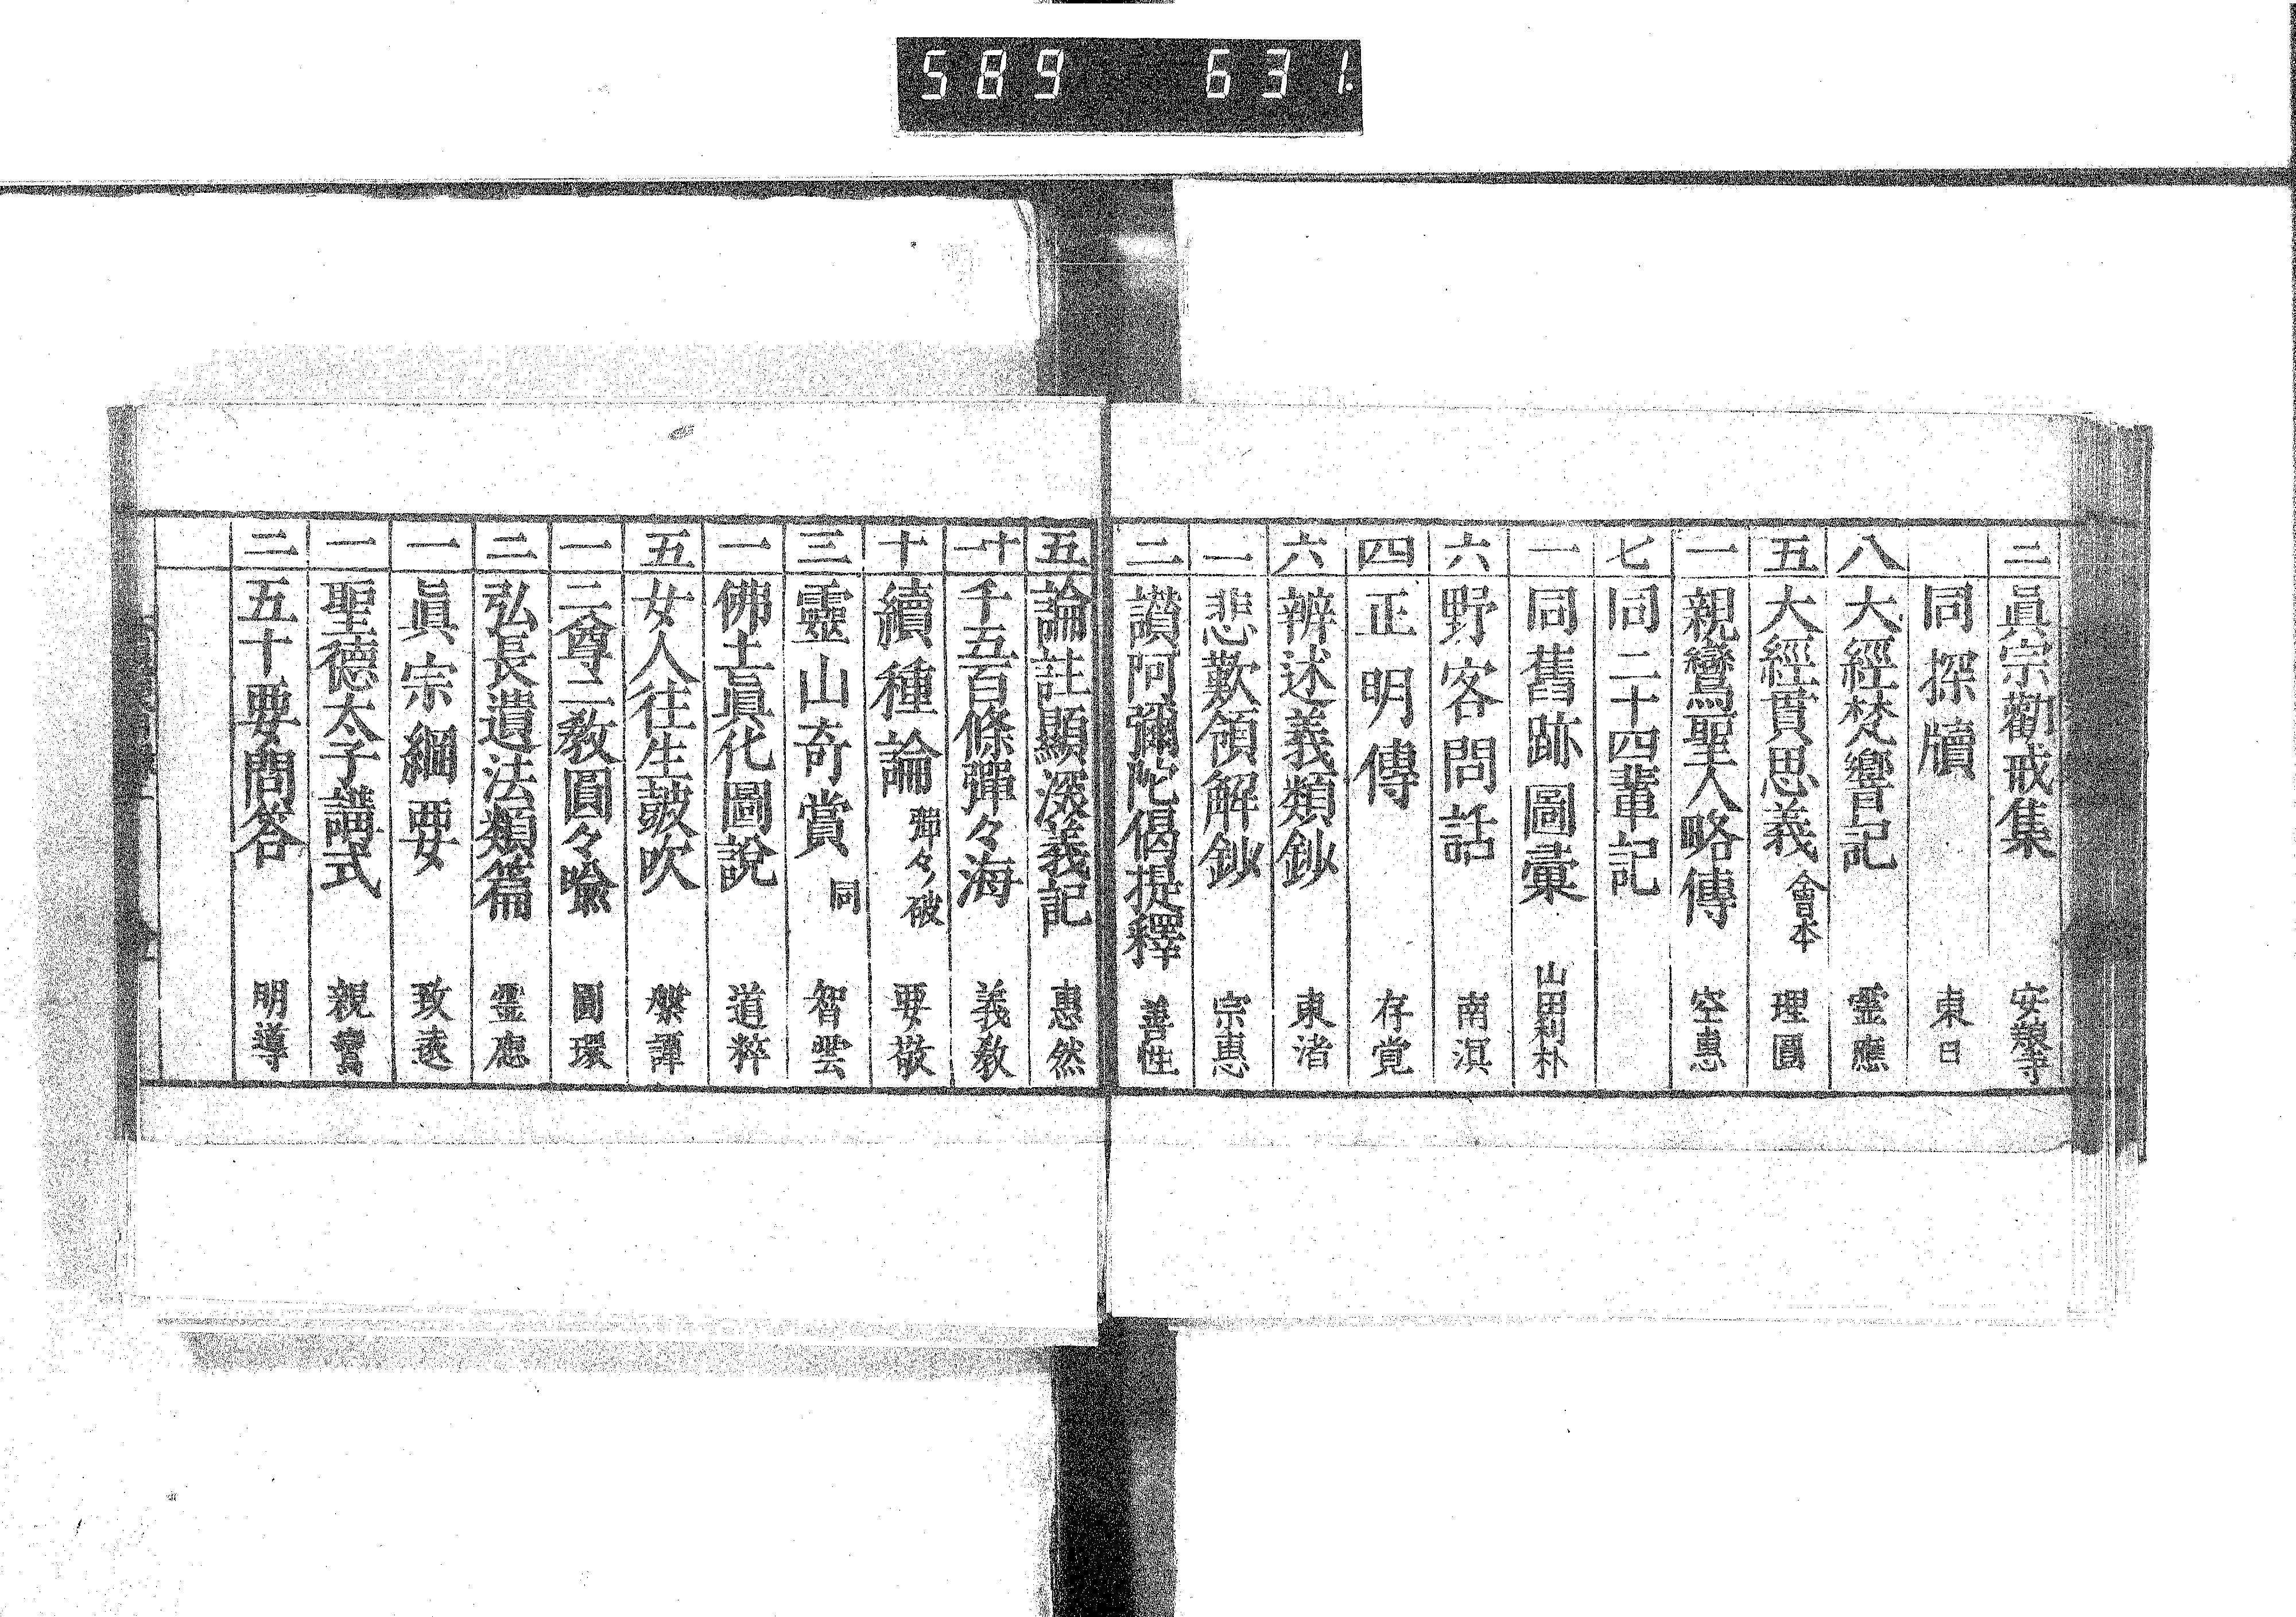 589 631.
二 眞宗勸戒集 安養寺
同探牘 東日
八 大經梵響記 靈應
五 大經貫思義 會本 理圓
一 親鸞聖人略傳 空惠
七 同二十四輩記
一 同舊跡圖彙 山田利朴
六 野客問話 南溟
四 正明傳 存覚
六 辨述義類鈔 東渚
一 悲歎領解鈔 宗惠
二 讃阿彌陀偈提釋 善性
五 論註顯深義記 惠然
十一 千五百條彈々海 義敎
十 續種論 彈々破 要敬
三 靈山奇賞 同 智雲
一 佛土眞化圖說 道粹
五 女人往生皷吹 槃譚
一 二尊二敎圓々喩 圓環
二 弘長遺法類篇 霊應
一 眞宗綱要 玫遠
一 聖德太子講式 親鸞
二 五十要問答 明導